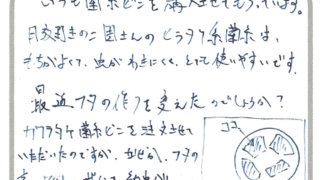 いつも菌糸ビンを購入させてもらっています。
月夜野きのこ園さんのヒラタケ系菌糸は、
もちがよくて、虫がわきにくく、とても使いやすいです。
最近フタの作りを変えたのでしょうか?
カワラタケ菌糸ビンを注文させて
いただいたのですが、なぜか、フタの
ココ